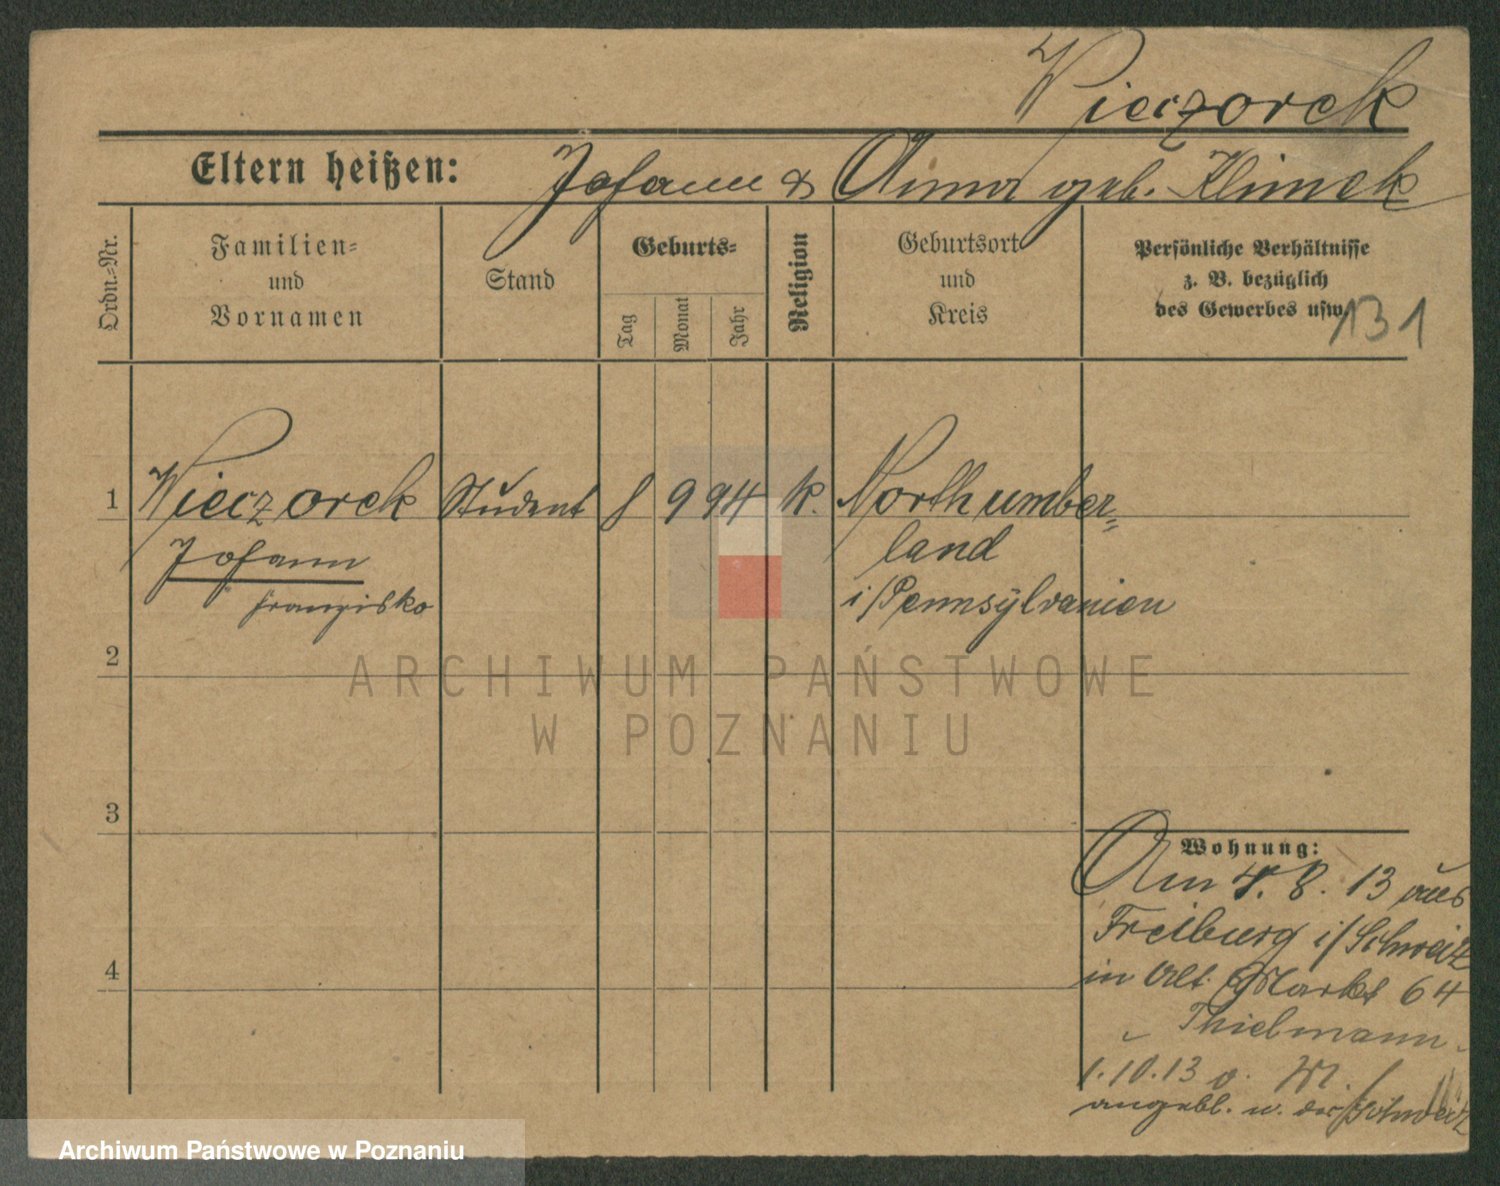 Wieczorek
Eltern heißen: Johann & Anna geb. Klimek
Ordn.-Nr.
Familien-
und
Vornamen
Stand
Geburts-
Tag
Monat
Jahr
Religion
Geburtsort
und
Kreis
Persönliche Verhältnisse
z. B. bezüglich
des Gewerbes usw.
131
1 Wieczorek Student 8 9 94 k. Northumber=
land
Johann
Franzisko
i/Pennsylvanien
2
ARCHIWUM PAŃSTWOWE
W POZNANIU
3
Wohnung:
Am 4. 8. 13 aus
Freiburg i/Schweiz
4
in Alt. Markt 64
Thielmann
1.10.13 v. M.
angebl. n. der Schweiz
Archiwum Państwowe w Poznaniu